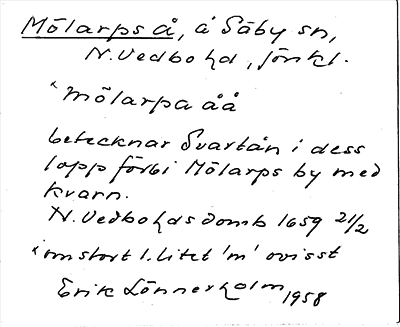 Mölarps å, å Säby sn,
N. Vedbo hd, Jönk l.
x mölarpa åå
betecknar Svartån i dess
lopp förbi Mölarps by med
kvarn.
N. Vedbo hds domb 1659 21/2
x om stort l. litet 'm' ovisst
Erik Lönnerholm 1958